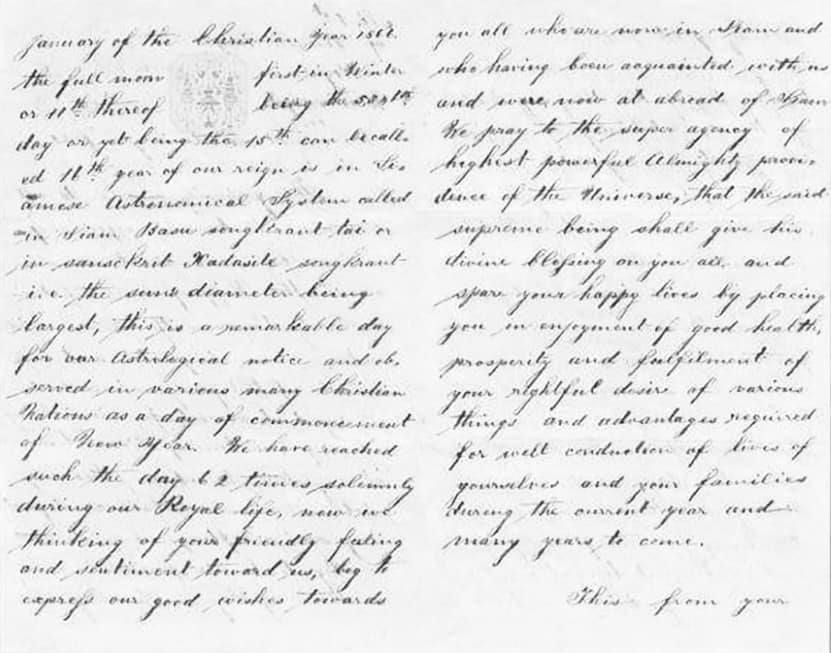 January of the Christian Year 1866
the full moon first in Winter
or 11th thereof being the 5341th
day or yet being the 15th can be call-
ed 16th year of our reign is in Si-
amese Astronomical System called
in Siam Basu songkrant tai or
in sansckrit songkrant
i.e. the suns diameter being
largest, this is a remarkable day
for our Astrological notice and ob-
served in various many Christian
Nations as a day of commencement
of New Year. We have reached
such the day 62 times solemnly
during our Royal life, now we
thinking of your friendly feeling
and sentiment toward us, beg to
express our good wishes towards
you all who are now in Siam and
who having been acquainted with us
and were now at abroad of Siam
We pray to the super agency of
highest powerful Almighty provi-
dence of the Universe, that the said
supreme being shall give his
divine blessing on you all, and
spare your happy lives by placing
you in enjoyment of good health,
prosperity and fulfilment of
your rightful desire of various
things and advantages required
for well conduction of lives of
yourselves and your families
during the current year and
many years to come.
This from your